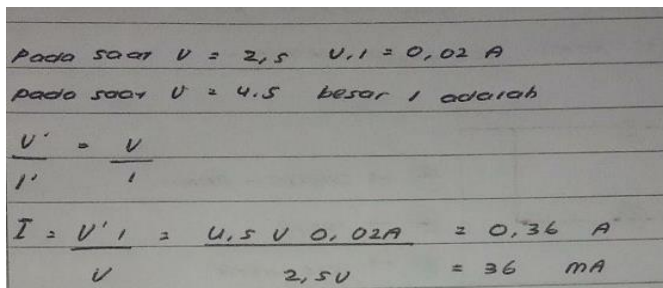 Pada saat V = 2,5 V, I = 0,02 A
pada saat V = 4.5 besar I adalah
V' / I' = V / I
I = V' I / V = 4,5 V 0,02A / 2,5V = 0,36 A
= 36 mA